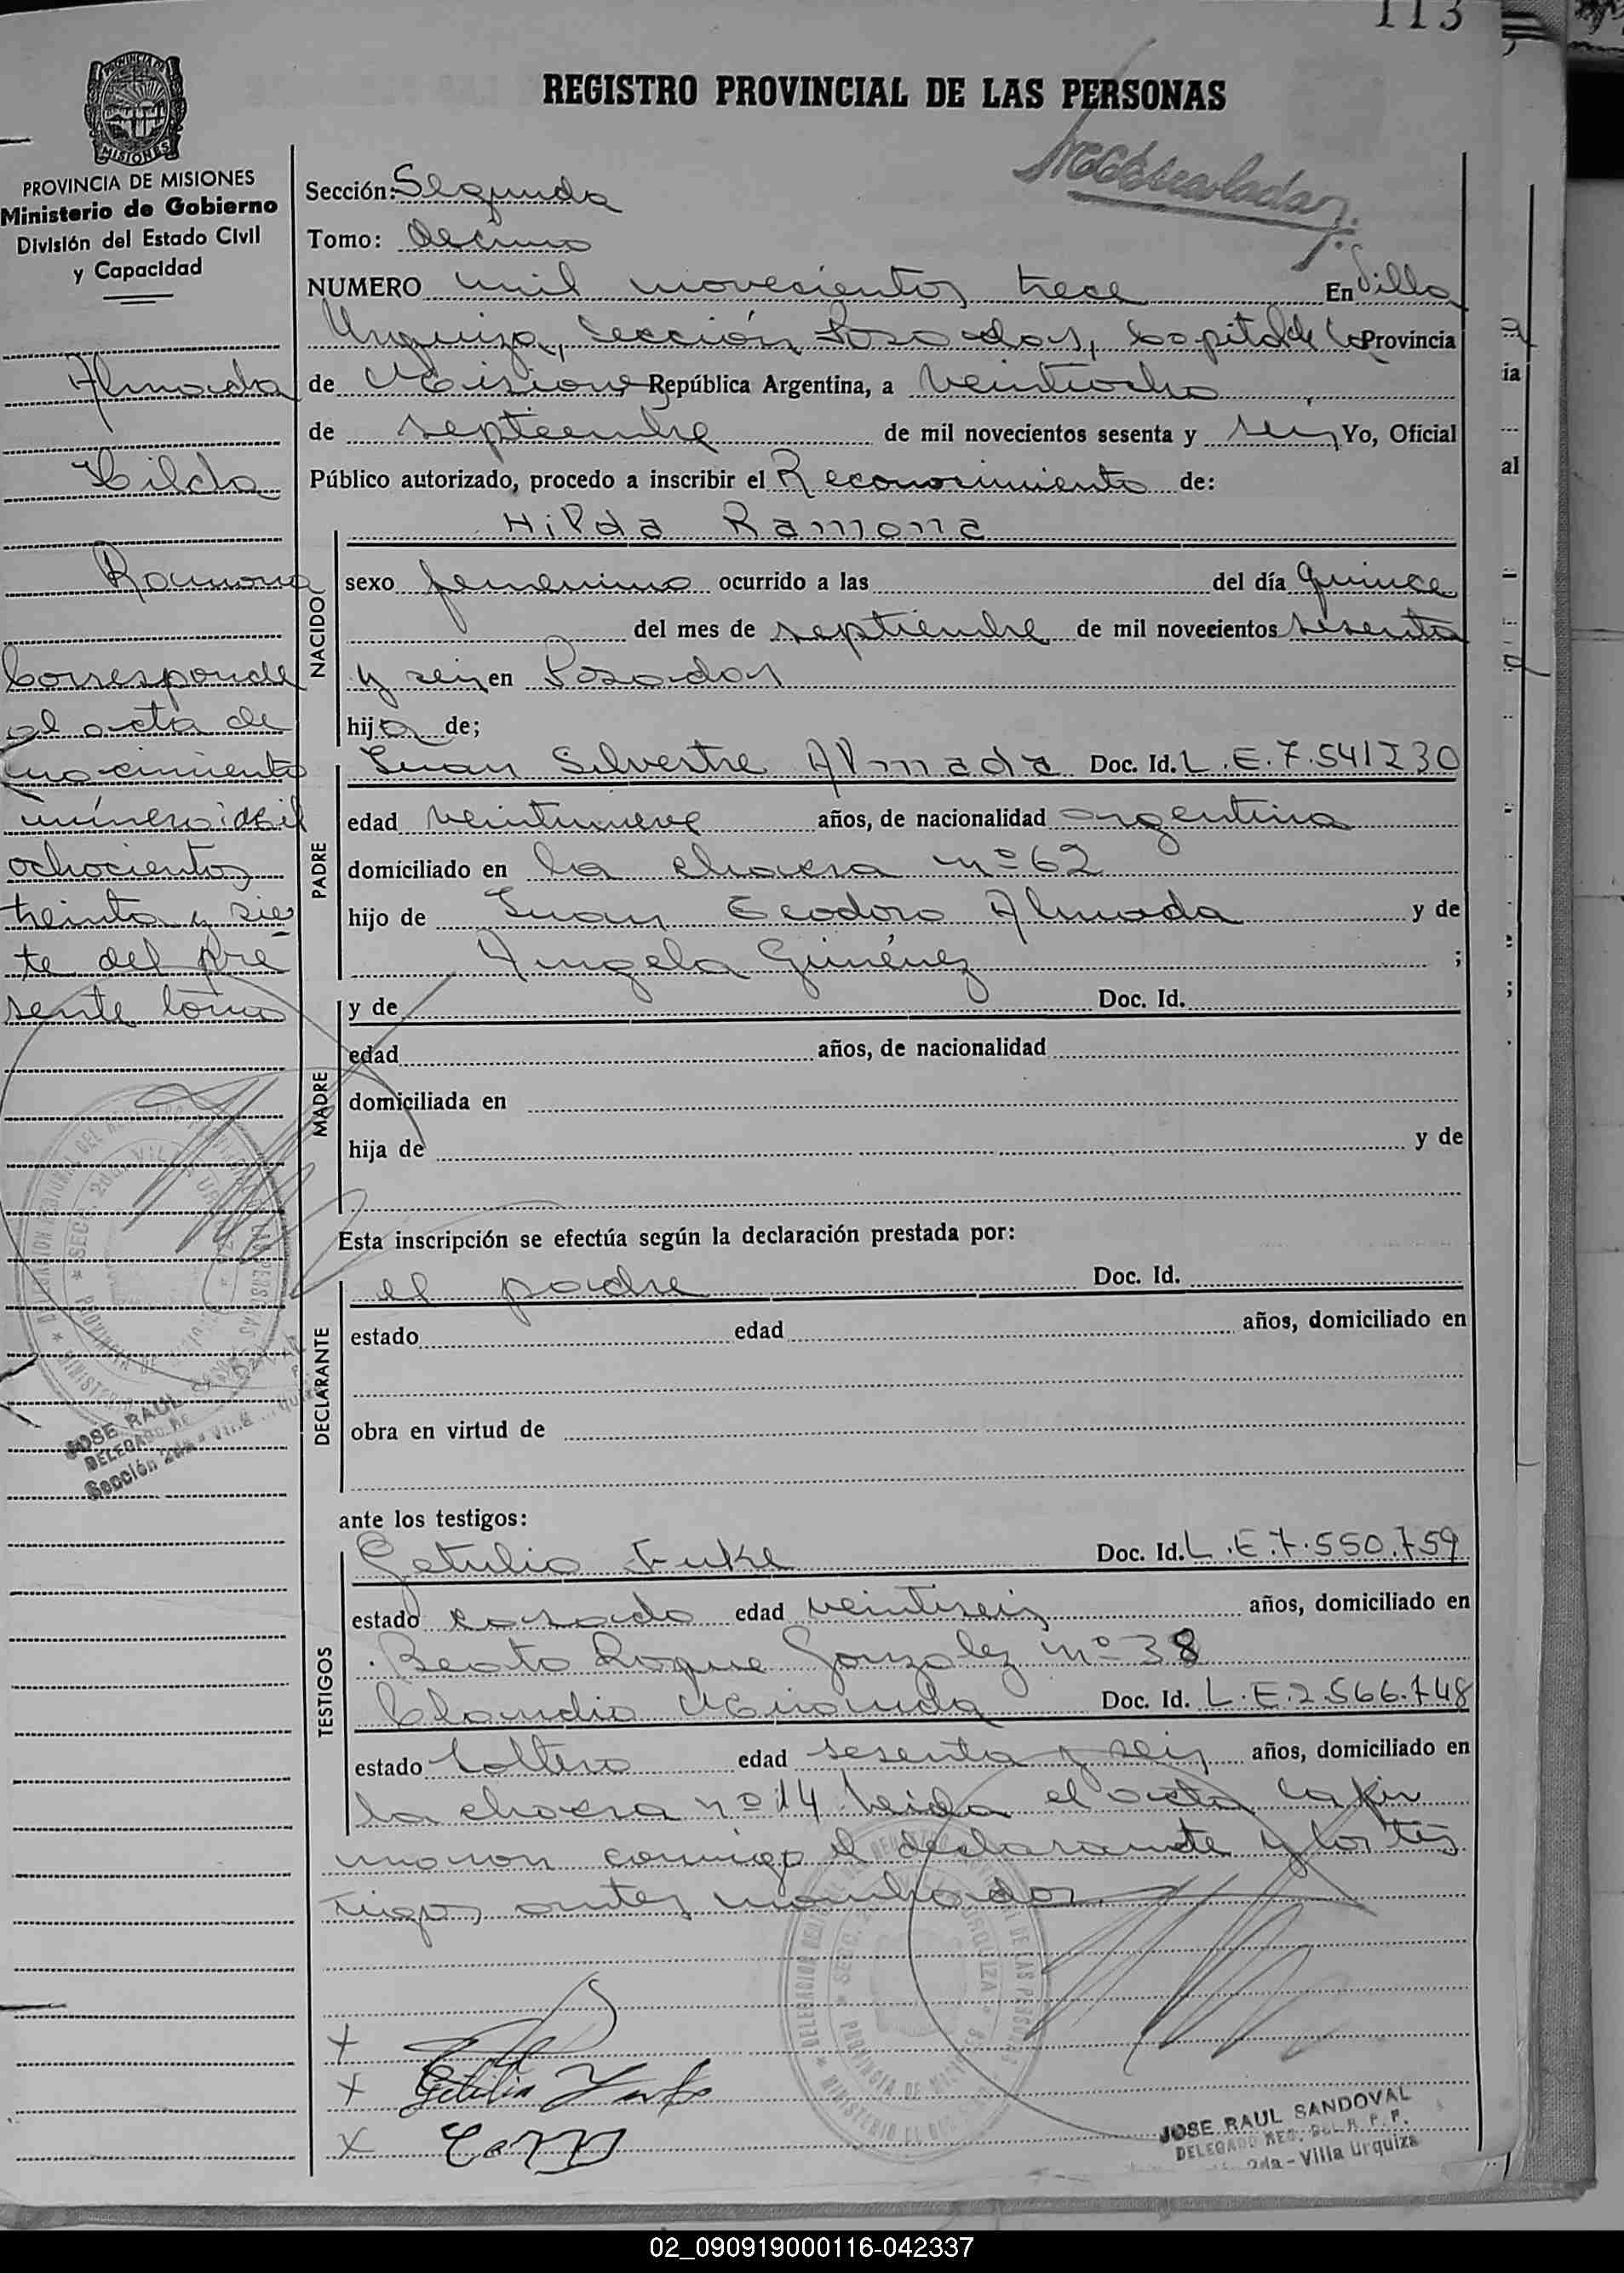 113
REGISTRO PROVINCIAL DE LAS PERSONAS
PROVINCIA DE
MISIONES
PROVINCIA DE MISIONES
Ministerio de Gobierno
División del Estado Civil
y Capacidad
Almada
Hilda
Ramona
Corresponde
al acta de
nacimiento
número: Mil
ochocientos
treinta y sie
te del pre
sente tomo
JOSE RAUL
DELEGADO
Sección 2da -
Sección: Segunda
Tomo: Decimo
NUMERO mil novecientos trece En Villa
Urquiza, Sección Posadas, Capital de la Provincia
de Misiones República Argentina, a veintiocho
de septiembre de mil novecientos sesenta y seis Yo, Oficial
Público autorizado, procedo a inscribir el Reconocimiento de:
Hilda Ramona
NACIDO
sexo femenino ocurrido a las del día quince
del mes de septiembre de mil novecientos sesenta
y seis en Posadas
hija de;
PADRE
Juan Silvestre Almada Doc. Id. L.E.7.541230
edad veintinueve años, de nacionalidad argentina
domiciliado en la chacra nº 62
hijo de Juan Teodoro Almada y de
Angela Giménez ;
MADRE
y de Doc. Id.
edad años, de nacionalidad
domiciliada en
hija de y de
Esta inscripción se efectúa según la declaración prestada por:
DECLARANTE
el padre Doc. Id.
estado edad años, domiciliado en
obra en virtud de
ante los testigos:
TESTIGOS
Getulio Fuke Doc. Id. L.E.7.550.759
estado casado edad veintiseis años, domiciliado en
Beato Roque Gonzalez nº 38
Claudio Miranda Doc. Id. L.E.2.566.748
estado Soltero edad sesenta y seis años, domiciliado en
la chacra nº 14. Leida el acta la fir
maron conmigo el declarante y los tes
tigos antes nombrados.
JOSE RAUL SANDOVAL
DELEGADO REG. DEL R. P. P.
2da - Villa Urquiza
02_090919000116-042337